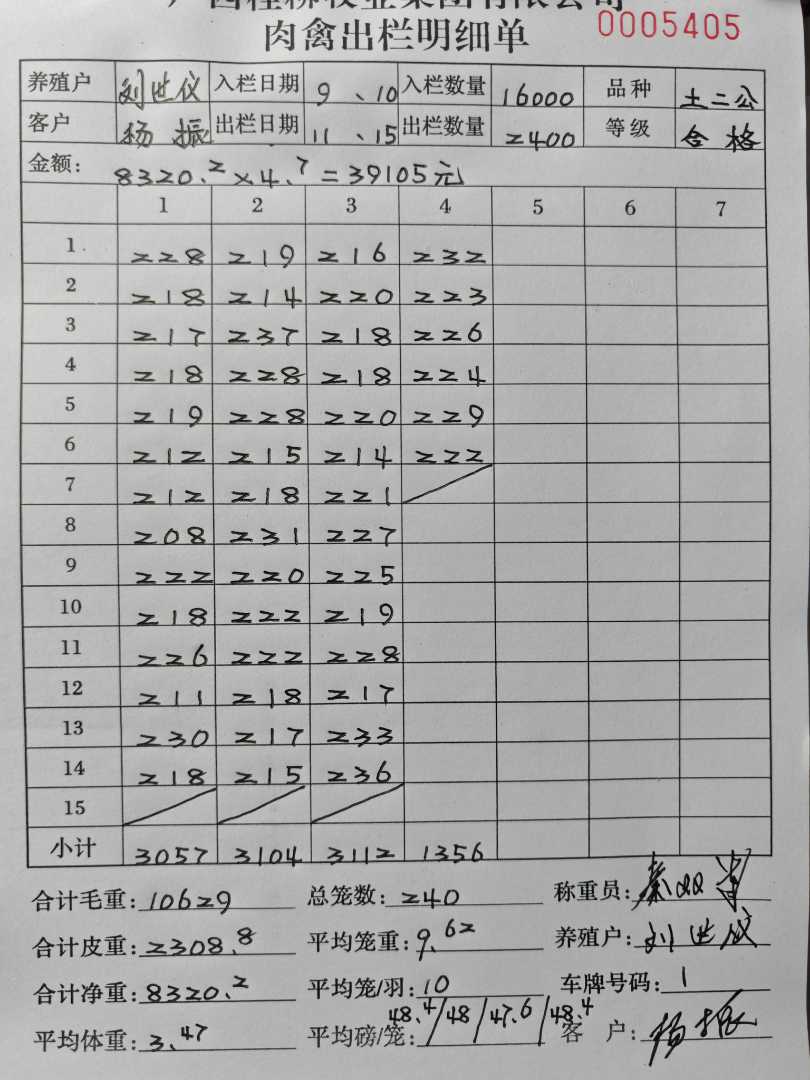 广西桂柳牧业集团有限公司
肉禽出栏明细单 0005405
养殖户 刘世仪 入栏日期 9、10 入栏数量 16000 品种 土二公
客户 杨振 出栏日期 11、15 出栏数量 2400 等级 合格
金额: 8320.2×4.7=39105元
1 2 3 4 5 6 7
1 228 219 216 232
2 218 214 220 223
3 217 237 218 226
4 218 228 218 224
5 219 228 220 229
6 212 215 214 222
7 212 218 221
8 208 231 227
9 222 220 225
10 218 222 219
11 226 222 228
12 211 218 217
13 230 217 233
14 218 215 236
15
小计 3057 3104 3112 1356
合计毛重: 10629 总笼数: 240 称重员:
合计皮重: 2308.8 平均笼重: 9.62 养殖户: 刘世
合计净重: 8320.2 平均笼/羽: 10 车牌号码: 1
平均体重: 3.47 平均磅/笼: 48.4/48/47.6/48.4 客户: 杨振